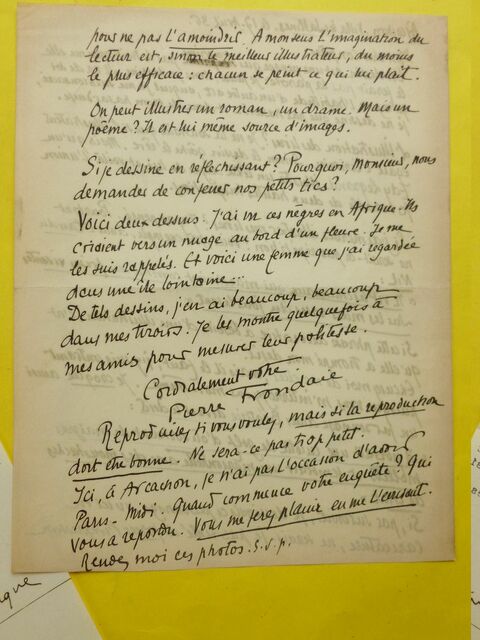 pour ne pas l'amoindrir. A mon sens l'imagination du
lecteur est, sinon le meilleur illustrateur, du moins
le plus efficace : chacun se peint ce qui lui plaît.
On peut illustrer un roman, un drame. Mais un
poème ? Il est lui même source d'images.
Si je dessine en réfléchissant ? Pourquoi, Monsieur, nous
demander de confesser nos petits tics ?
Voici deux dessins. J'ai vu ces nègres en Afrique. Ils
criaient vers un nuage au bord d'un fleuve. Je me
les suis rappelés. Et voici une femme que j'ai regardée
dans une île lointaine...
De tels dessins, j'en ai beaucoup, beaucoup
dans mes tiroirs. Je les montre quelquefois à
mes amis pour mesurer leur politesse.
Cordialement votre
Pierre Frondaie
Reproduisez si vous voulez, mais si la reproduction
doit être bonne. Ne sera-ce pas trop petit.
Ici, à Arcachon, je n'ai pas l'occasion d'avoir
Paris-Midi. Quand commence votre enquête ? Qui
vous a répondu. Vous me ferez plaisir en me l'envoyant.
Rendez moi ces photos. S.V.P.